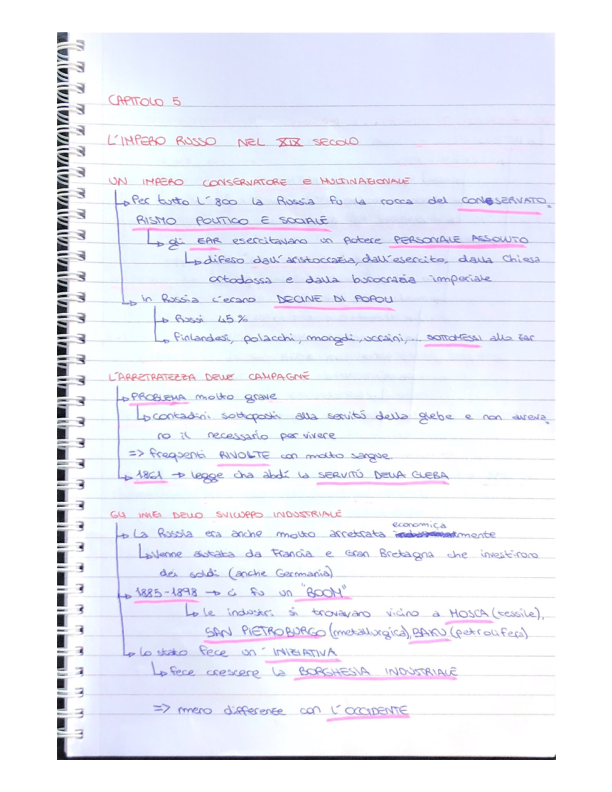 CAPITOLO 5
L'IMPERO RUSSO NEL XIX SECOLO
UN IMPERO CONSERVATORE E MULTINAZIONALE
↳ Per tutto l'800 la Russia fu la rocca del CONSERVATO
RISMO POLITICO E SOCIALE
↳ gli ZAR esercitavano un potere PERSONALE ASSOLUTO
↳ difeso dall'aristocrazia, dall'esercito, dalla Chiesa
ortodossa e dalla burocrazia imperiale
↳ in Russia c'erano DECINE DI POPOLI
↳ Russi 45%
↳ Finlandesi, polacchi, mongoli, ucraini,... SOTTOMESSI allo zar
L'ARRETRATEZZA DELLE CAMPAGNE
↳ PROBLEMA molto grave
↳ contadini sottoposti alla servitù della glebe e non aveva
no il necessario per vivere
=> frequenti RIVOLTE con molto sangue
↳ 1861 → legge che abolì la SERVITÙ DELLA GLEBA
GLI INIZI DELLO SVILUPPO INDUSTRIALE
↳ La Russia era anche molto arretrata economicamente
↳ Venne aiutata da Francia e Gran Bretagna che investirono
dei soldi (anche Germania)
↳ 1885-1898 → ci fu un "BOOM"
↳ le industri si trovavano vicino a MOSCA (tessile),
SAN PIETROBURGO (metallurgica), BAKU (petrolifera)
↳ lo stato fece un' INIZIATIVA
↳ fece crescere la BORGHESIA INDUSTRIALE
=> meno differenze con L'OCCIDENTE